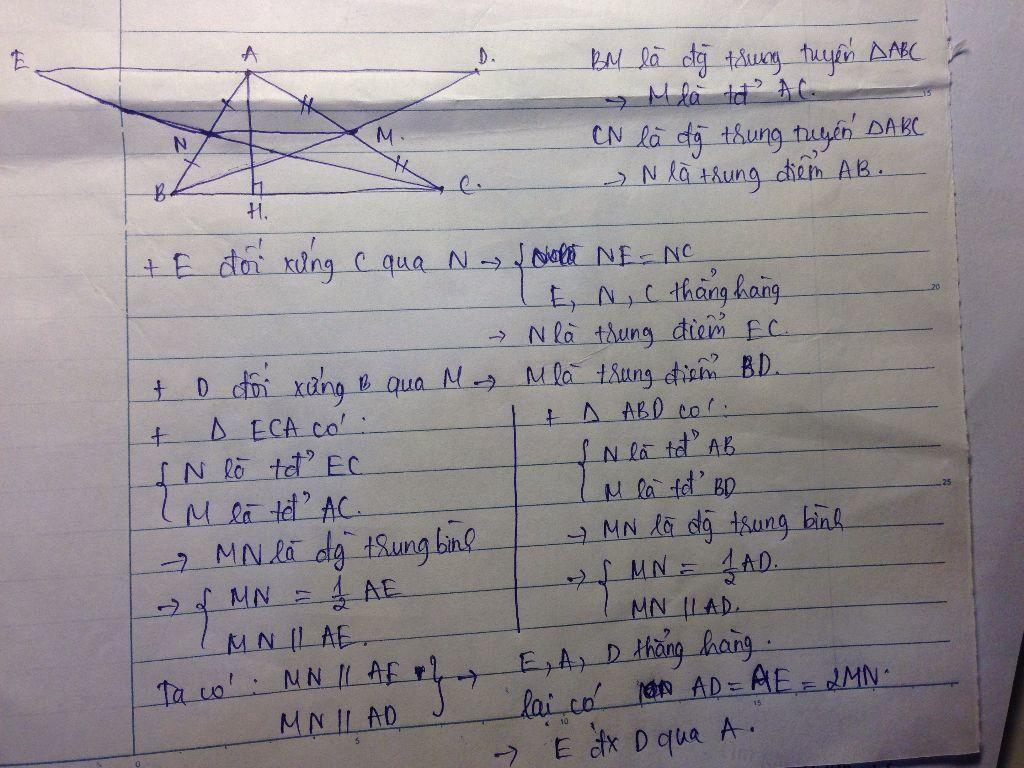 E A D.
N M.
B H. C.
BM là đg̃ trung tuyến ΔABC
→ M là tđ' AC.
CN là đg̃ trung tuyến ΔABC
→ N là trung điểm AB.
+ E đối xứng C qua N → { NE = NC
E, N, C thẳng hàng
→ N là trung điểm EC.
+ D đối xứng B qua M → M là trung điểm BD.
+ Δ ECA có :
{ N là tđ' EC
M là tđ' AC.
→ MN là đg̃ trung bình
→ { MN = 1/2 AE
MN // AE.
+ Δ ABD có :
{ N là tđ' AB
M là tđ' BD
→ MN là đg̃ trung bình
→ { MN = 1/2 AD.
MN // AD.
Ta có : MN // AE } → E, A, D thẳng hàng.
MN // AD lại có AD = AE = 2MN.
→ E đx D qua A.